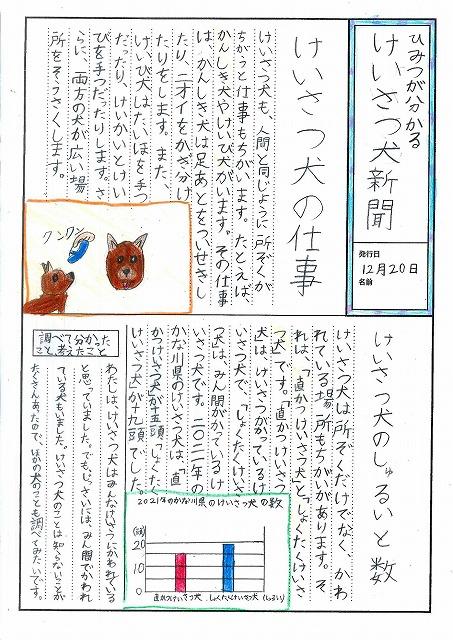 ひみつが分かる
けいさつ犬新聞
発行日
12月20日
名前
けいさつ犬の仕事
けいさつ犬も、人間と同じように所ぞくが
ちがうと仕事もちがいます。たとえば、
かんしき犬やけいび犬がいます。その仕事
は、かんしき犬は足あとをついせきし
たり、ニオイをかぎ分け
たりをします。また、
けいび犬はたいほを手つ
だったり、けいかいとけい
びを手つだったりします。さ
らに、両方の犬が広い場
所をそうさくします。
クンクン
けいさつ犬のしゅるいと数
けいさつ犬は所ぞくだけでなく、かわ
れている場所もちがいがあります。そ
れは、「直かつけいさつ犬」と「しょくたくけいさ
つ犬」です。「直かつけいさつ
犬」は、けいさつがかっているけ
いさつ犬で、「しょくたくけいさ
つ犬」は、みん間がかっているけ
いさつ犬です。二〇二一年の
かな川県のけいさつ犬は、「直
かつけいさつ犬」が十五頭、「しょくたく
けいさつ犬」が十九頭でした。
2021年のかな川県のけいさつ犬の数
(頭)
20
10
0
直かつけいさつ犬
しょくたくけいさつ犬
(しゅるい)
調べて分かった
こと、考えたこと
わたしは、けいさつ犬はみんなけいさつにかわれている
と思っていました。でも、じっさいには、みん間でかわれ
ている犬もいました。けいさつ犬のことは知らないことが
たくさんあったので、ほかの犬のことも調べてみたいです。